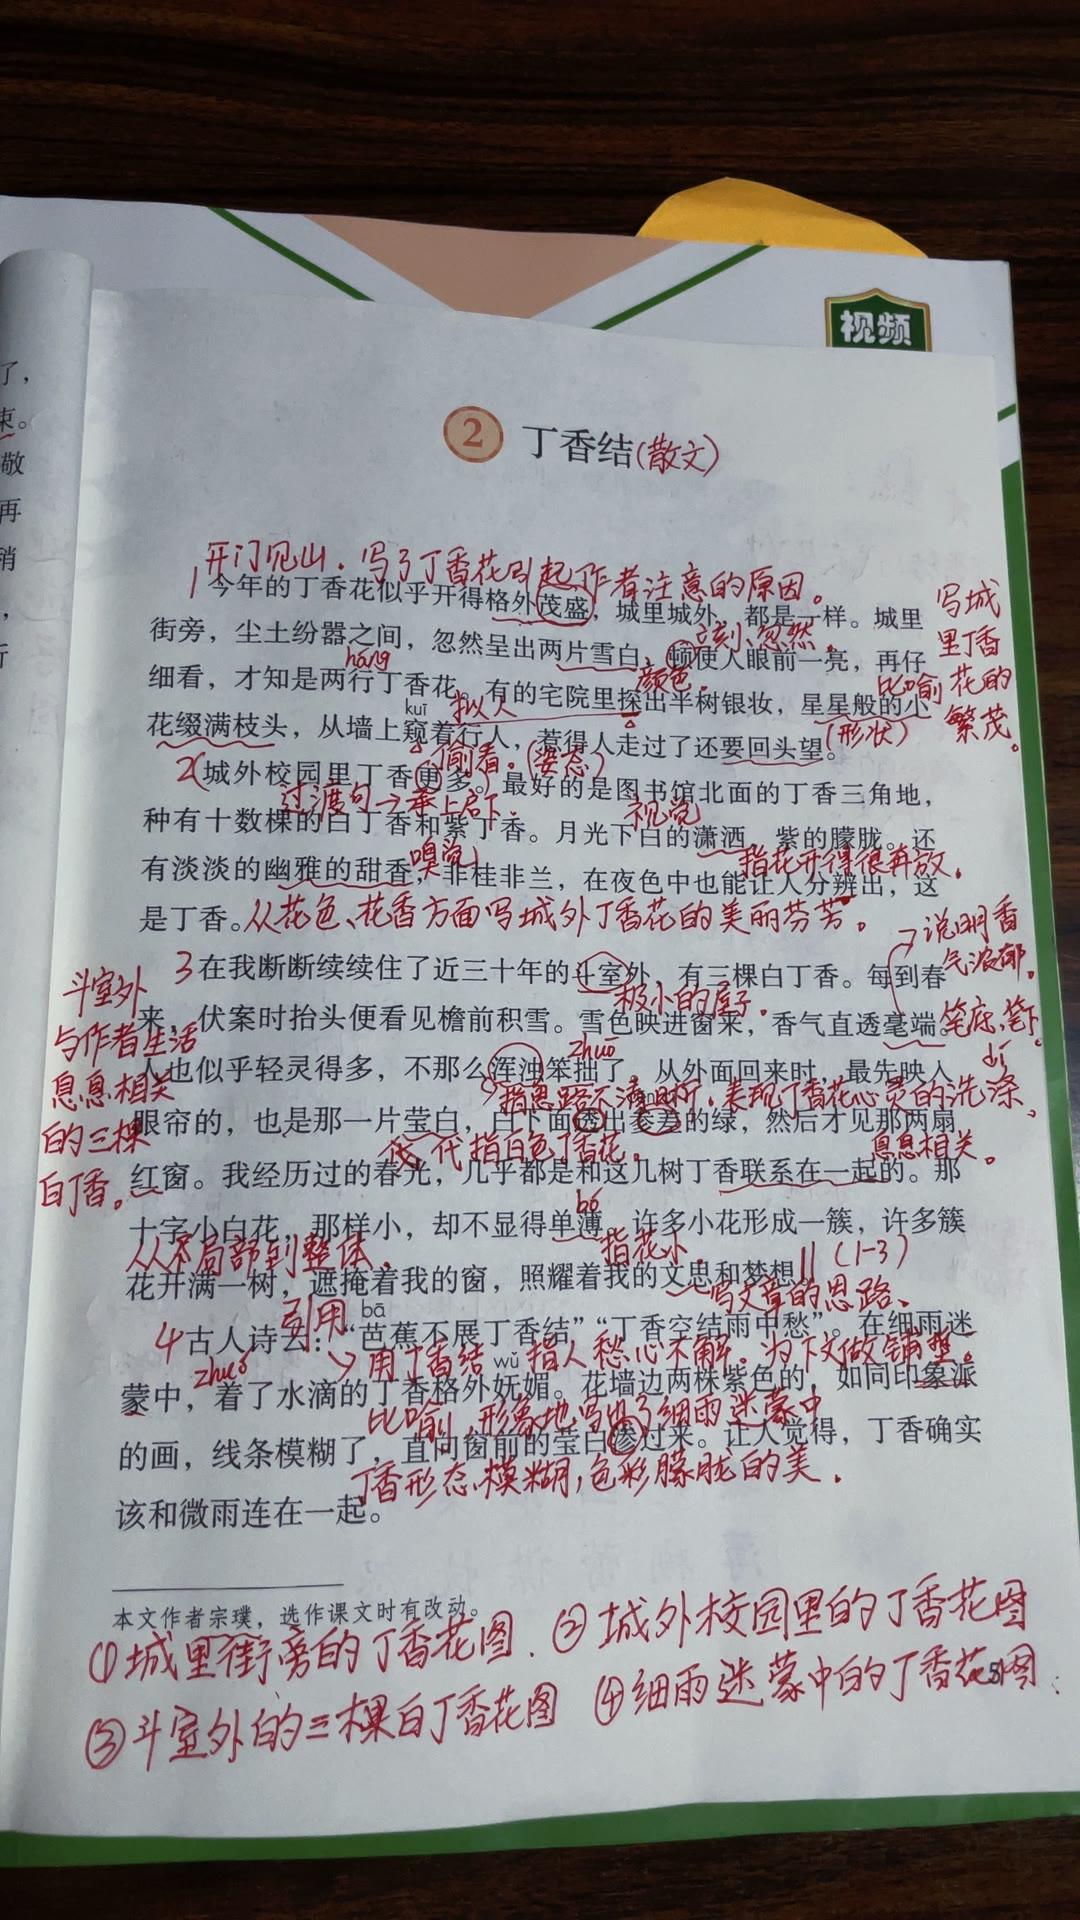 视频
了，
束。
敬
再
稍
，
行
2 丁香结(散文)
开门见山．写了丁香花引起作者注意的原因。
1 今年的丁香花似乎开得格外茂盛，城里城外，都是一样。城里
写城
里丁香
花的
繁茂。
立刻、忽然。
街旁，尘土纷嚣之间，忽然呈出两片雪白，顿使人眼前一亮，再仔
háng
颜色。
比喻
细看，才知是两行丁香花。有的宅院里探出半树银妆，星星般的小
kuī
拟人
(形状)
花缀满枝头，从墙上窥着行人，惹得人走过了还要回头望。
偷看。(姿态)
2(城外校园里丁香更多。)最好的是图书馆北面的丁香三角地，
过渡句→承上启下．
视觉
种有十数棵的白丁香和紫丁香。月光下白的潇洒，紫的朦胧。还
嗅觉
指花开得很奔放．
有淡淡的幽雅的甜香，非桂非兰，在夜色中也能让人分辨出，这
是丁香。从花色、花香方面写城外丁香花的美丽芬芳。
→说明香
气浓郁。
斗室外
与作者生活
息息相关
的三棵
白丁香。
3 在我断断续续住了近三十年的斗室外，有三棵白丁香。每到春
极小的屋子．
来，伏案时抬头便看见檐前积雪。雪色映进窗来，香气直透毫端。笔底、笔下
zhuō
人也似乎轻灵得多，不那么浑浊笨拙了。从外面回来时，最先映入
指思路不清晰．表现丁香花心灵的洗涤、
眼帘的，也是那一片莹白，白下面透出参差的绿，然后才见那两扇
代指白色丁香花．
息息相关。
红窗。我经历过的春光，几乎都是和这几树丁香联系在一起的。那
bó
十字小白花，那样小，却不显得单薄。许多小花形成一簇，许多簇
从局部到整体．
指花小．
(1-3)
花开满一树，遮掩着我的窗，照耀着我的文思和梦想。
写文章的思路、
引用 bā
4 古人诗云：“芭蕉不展丁香结”“丁香空结雨中愁”。在细雨迷
zhuó
用丁香结 指人愁心不解。为下文做铺垫。
wǔ
蒙中，着了水滴的丁香格外妩媚。花墙边两株紫色的，如同印象派
比喻，形象地写出了细雨迷蒙中
的画，线条模糊了，直向窗前的莹白渗过来。让人觉得，丁香确实
丁香形态模糊，色彩朦胧的美．
该和微雨连在一起。
本文作者宗璞，选作课文时有改动。
①城里街旁的丁香花图．②城外校园里的丁香花图
5
③斗室外的三棵白丁香花图 ④细雨迷蒙中的丁香花图